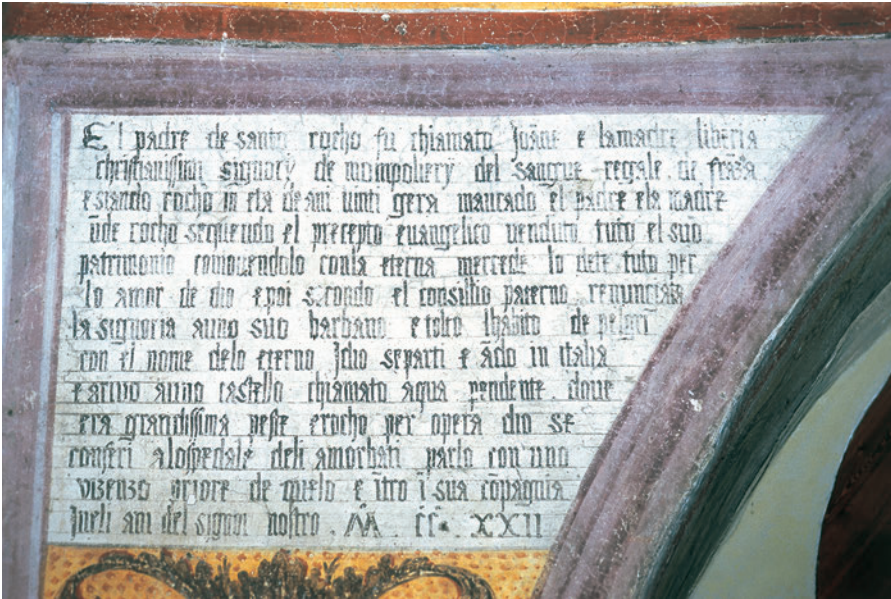 El padre de santo rocho fu chiamato Joāne e lamadre liberia
christianissimi signorÿ de mompolierÿ del sangue regale de frāza
e siando rocho in eta de ani vinti gera mancado el padre ela madre
ūde rocho sequendo el precepto euangelico venduto tuto el suo
patrimonio comouendolo con la eterna mercede lo dete tuto per
lo amor de dio e poi secondo el consilio paterno renunciata
la signoria auno suo barbano e tolto lhabito de pelgri
con el nome delo eterno Idio se parti e ādo in italia
e ariuo auno castello chiamato aqua pendente doue
era grandissima peste e rocho per opera dio se
conferi a lospedale deli amorbati parlo con uno
vizenzo priore de quelo e ītro ī sua cōpagnia
Jneli ani del signor nostro . M . CC . XXII